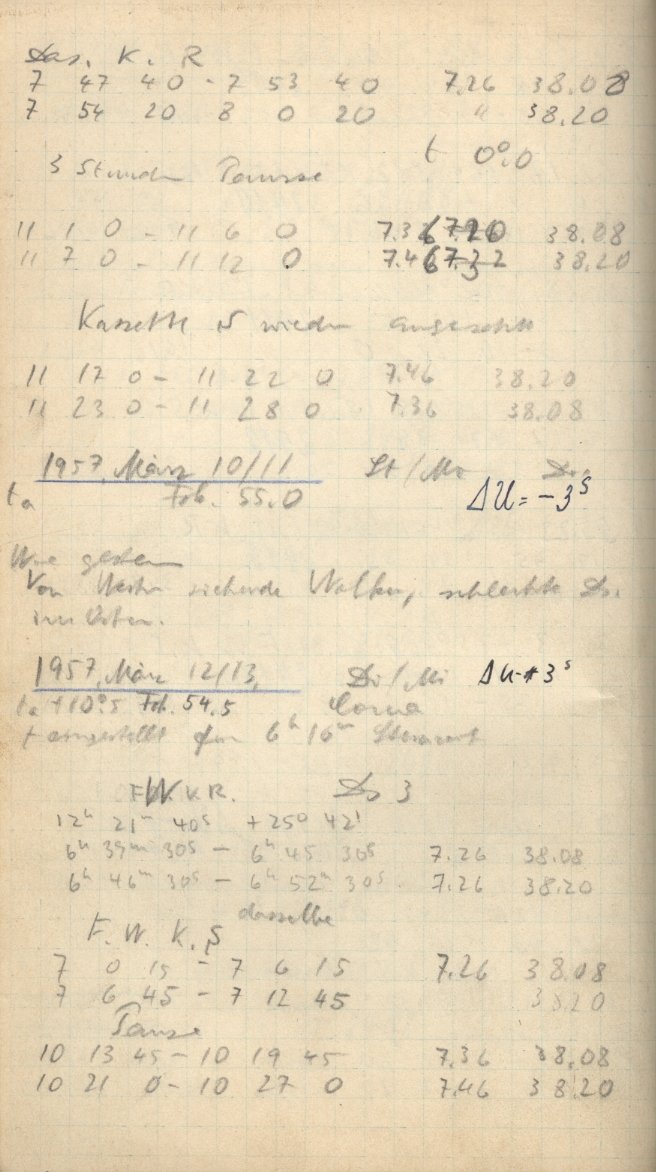 Das. K. R
7 47 40 - 7 53 40 7.26 38.08
7 54 20 8 0 20 " 38.20
t 0°.0
3 Stunden Pausse
11 1 0 - 11 6 0 7.36 38.08
11 7 0 - 11 12 0 7.46 38.20
Kassette S wieder angesetzt
11 17 0 - 11 22 0 7.46 38.20
11 23 0 - 11 28 0 7.36 38.08
1957, März 10/11
ta Fok. 55.0 ΔU = -3s
Wie gestern
Von Westen ziehende Wolken, schlechte Ds.
im Osten.
1957, März 12/13, Di/Mi ΔU + 3s
ta +10°.5 Fok. 54.5 Coma
t eingestellt für 6h 16m
F.W. K R. Ds 3
12h 21m 40s +25° 42'
6h 39m 30s - 6h 45 30s 7.26 38.08
6h 46m 30s - 6h 52m 30s 7.26 38.20
dasselbe
F. W. K. S
7 0 15 - 7 6 15 7.26 38.08
7 6 45 - 7 12 45 38.20
Pause
10 13 45 - 10 19 45 7.36 38.08
10 21 0 - 10 27 0 7.46 38.20